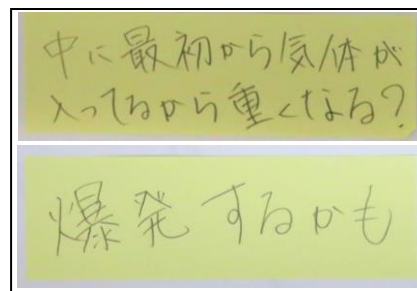 中に最初から気体が
入ってるから重くなる?
爆発するかも